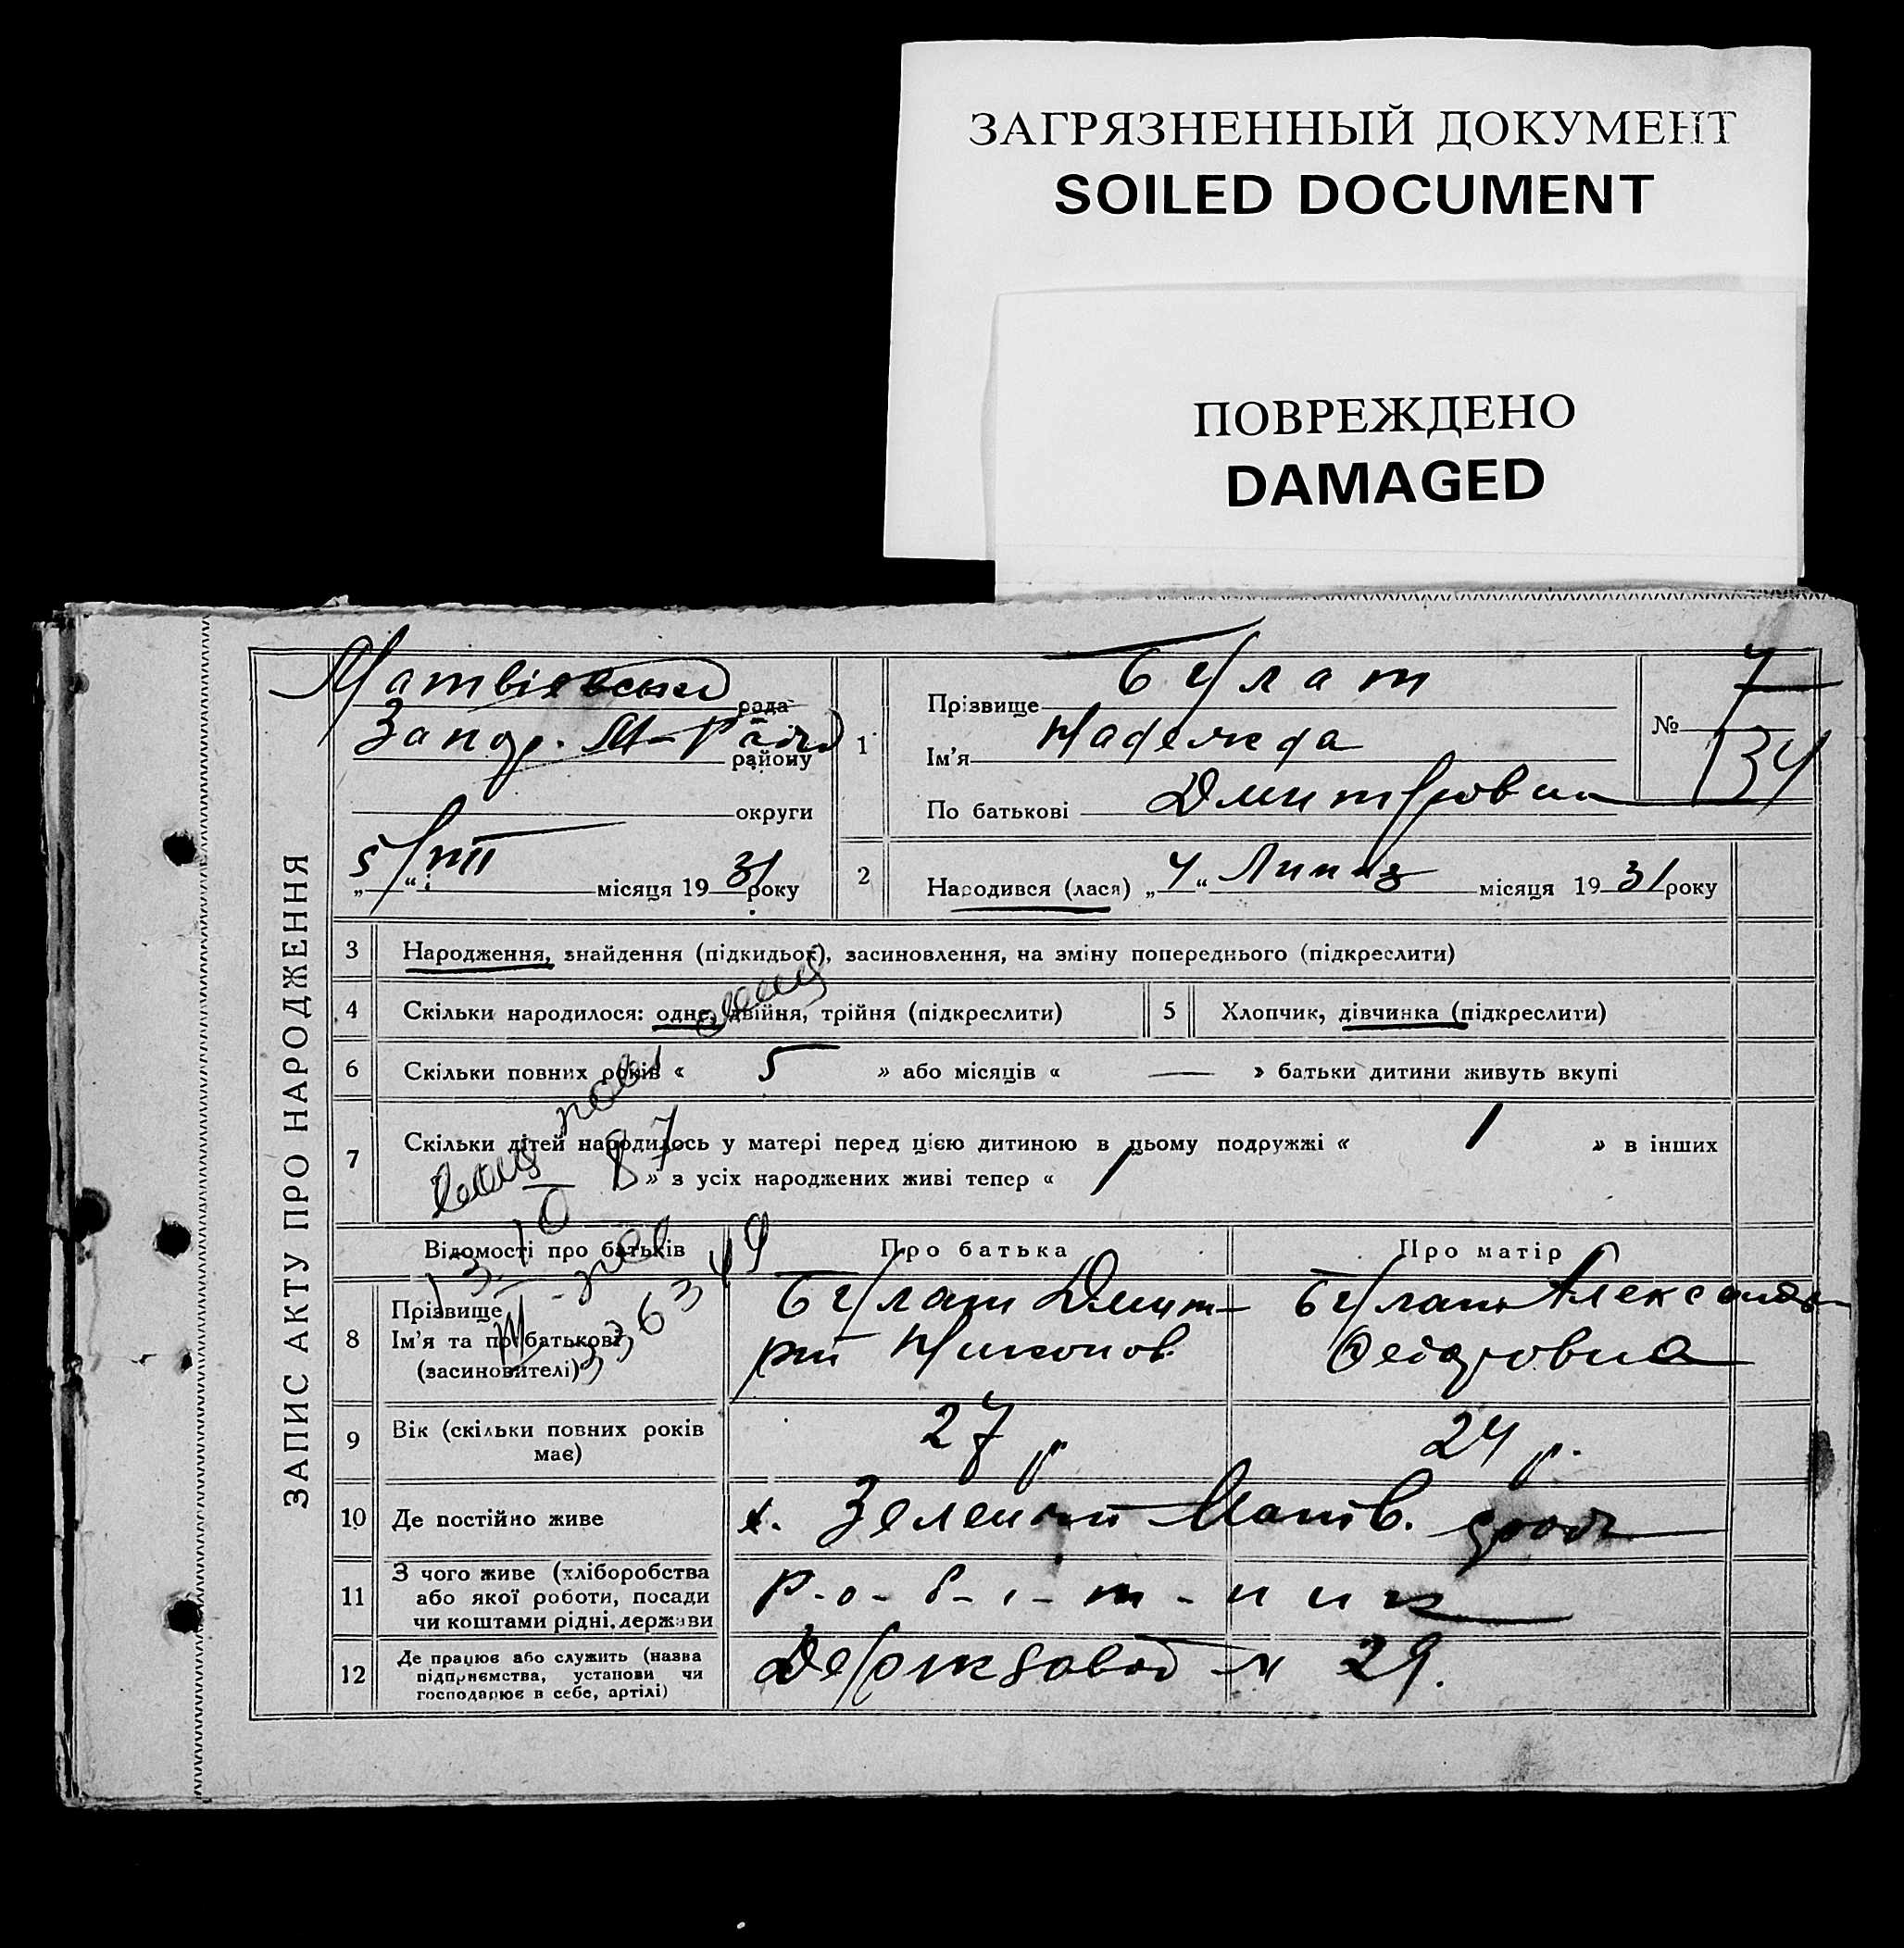 ЗАГРЯЗНЕННЫЙ ДОКУМЕНТ
SOILED DOCUMENT
ПОВРЕЖДЕНО
DAMAGED
ЗАПИС АКТУ ПРО НАРОДЖЕННЯ
Матвіївська рада
Запор. М-Район району
округи
„5“ VIII місяця 1931 року
1
Прізвище Булат
Ім'я Надежда
По батькові Дмитровна
№ 7
34
2
Народився (лася) „4“ Липня місяця 1931 року
3 Народження, знайдення (підкидьок), засиновлення, на зміну попереднього (підкреслити)
4 Скільки народилося: одне, двійня, трійня (підкреслити)
5 Хлопчик, дівчинка (підкреслити)
6 Скільки повних років « 5 » або місяців « — » батьки дитини живуть вкупі
7 Скільки дітей народилось у матері перед цією дитиною в цьому подружжі « 1 » в інших
» з усіх народжених живі тепер « 1
13-10 87
336349
Відомості про батьків Про батька Про матір
8 Прізвище
Ім'я та по батькові
(засиновителі)
Булат Дмит-
рій Никонов.
Булат Александра
Федоровна
9 Вік (скільки повних років
має)
27 р
24 р.
10 Де постійно живе х. Зелений Матв.
11 З чого живе (хліборобства
або якої роботи, посади
чи коштами рідні, держави
Р-о-б-і-т-ник
12 Де працює або служить (назва
підприємства, установи чи
господарює в себе, артілі)
Держзавод № 29.